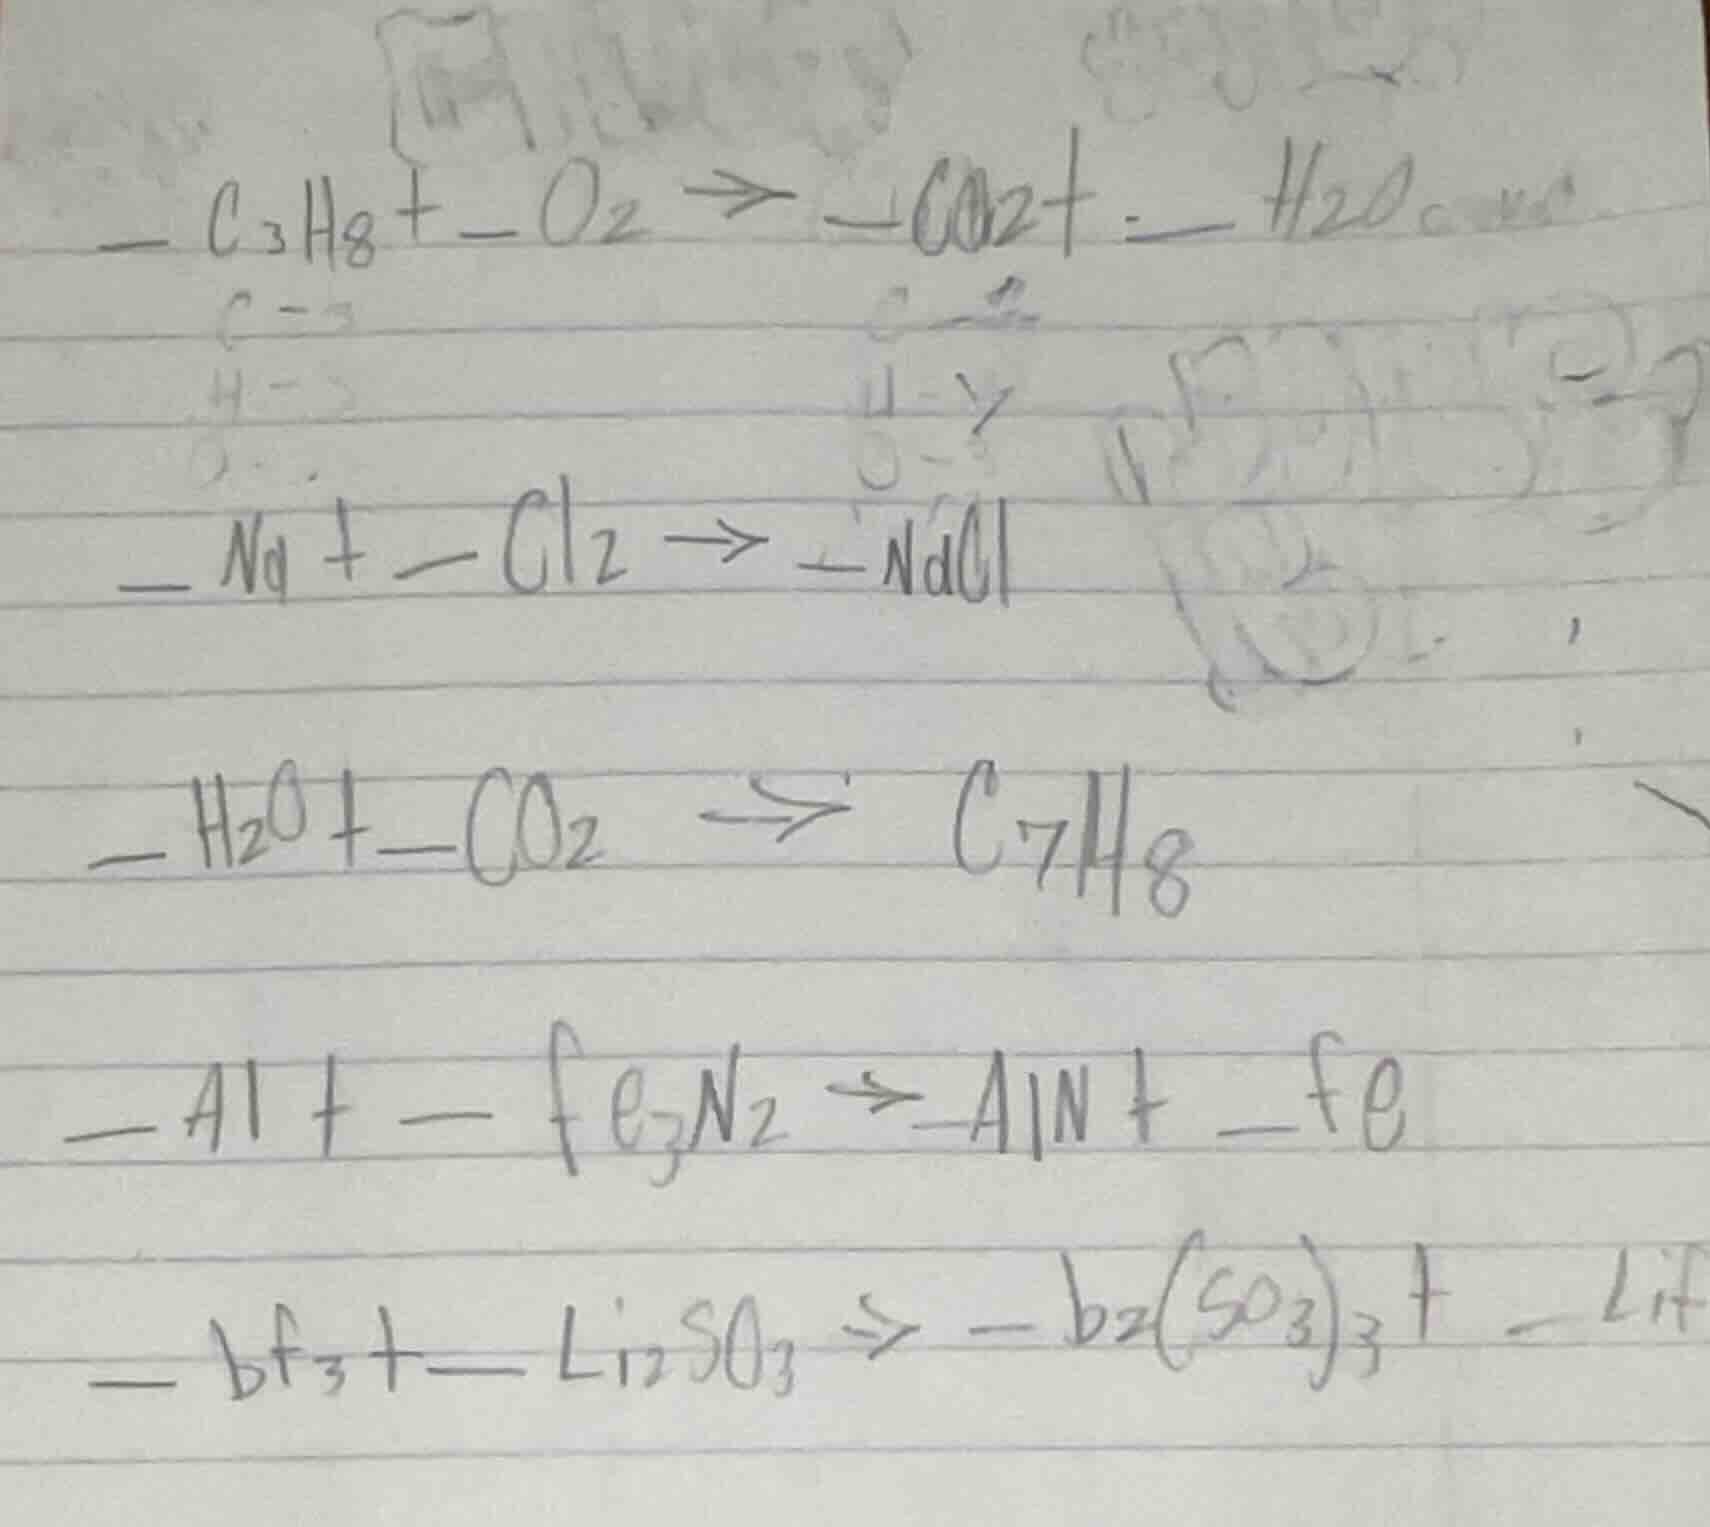 _ C3H8 + _ O2 → _ CO2 + _ H2O
C - 3
H -
C -
H - Y
O - 3
_ Na + _ Cl2 → _ NaCl
_ H2O + _ CO2 → C7H8
_ Al + _ fe3N2 → _ AlN + _ fe
_ bf3 + _ Li2SO3 → _ b2(SO3)3 + _ Lif